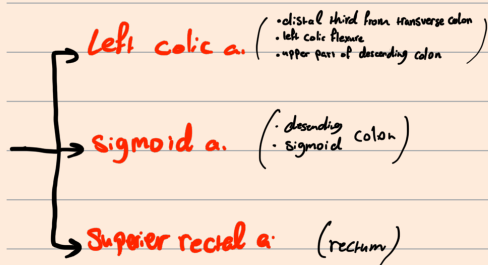 Left colic a. (• distal third from transverse colon
• left colic flexure
• upper part of descending colon)
sigmoid a. (• desending
• sigmoid colon)
Superier rectal a. (rectum)